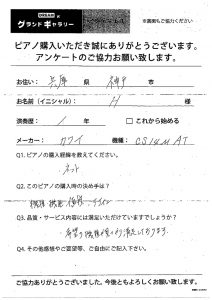 グランドギャラリー
※裏面もご協力ください
ピアノ購入いただき誠にありがとうございます。
アンケートのご協力お願い致します。
お住い: 兵庫 県 神戸 市
お名前(イニシャル): H 様
演奏歴: 1 年 □ これから始める
メーカー: カワイ 機種: CS14M AT
Q1.ピアノの購入経緯を教えてください。
ネット
Q2.このピアノの購入時の決め手は?
Q3.品質・サービス内容には満足いただけていますでしょうか?
Q4.その他感想やご要望等、ご自由にご記入下さい。
ご協力ありがとうございました。今後ともよろしくお願い致します。